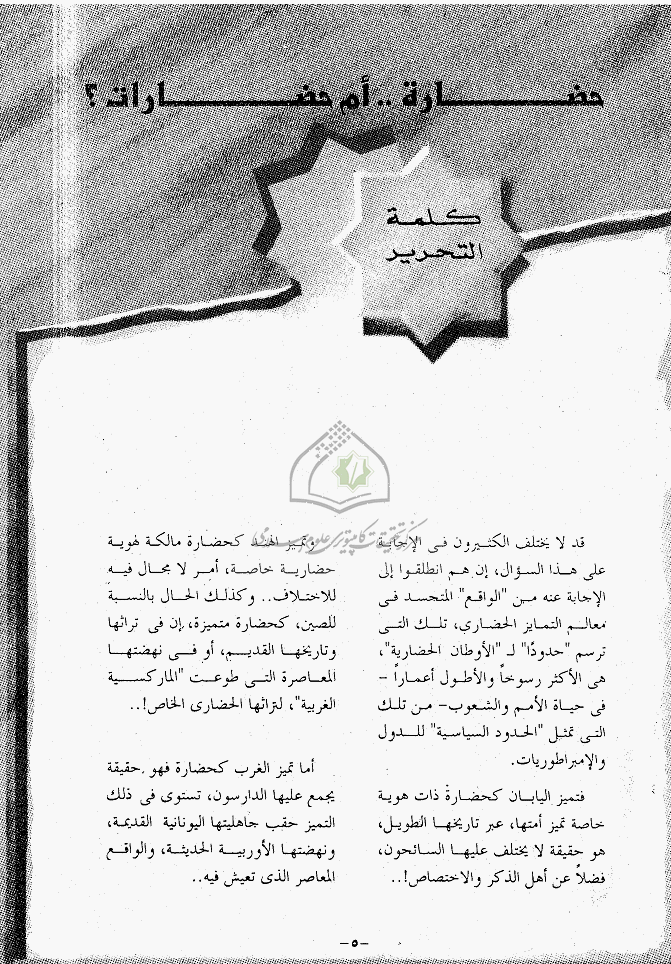 حضارة .. أم حضارات ؟
كلمة
التحرير
قد لا يختلف الكثيرون فى الإجابة
على هذا السؤال، إن هم انطلقوا إلى
الإجابة عنه من "الواقع" المتجسد فى
معالم التمايز الحضاري، تلك التى
ترسم "حدودًا" لـ "الأوطان الحضارية"،
هى الأكثر رسوخاً والأطول أعماراً –
فى حياة الأمم والشعوب– من تلك
التى تمثل "الحدود السياسية" للدول
والإمبراطوريات.
فتميز اليابان كحضارة ذات هوية
خاصة تميز أمتها، عبر تاريخها الطويل،
هو حقيقة لا يختلف عليها السائحون،
فضلاً عن أهل الذكر والاختصاص!..
وتميز الهند كحضارة مالكة لهوية
حضارية خاصة، أمر لا مجال فيه
للاختلاف.. وكذلك الحال بالنسبة
للصين، كحضارة متميزة، إن فى تراثها
وتاريخها القديم، أو فى نهضتها
المعاصرة التى طوعت "الماركسية
الغربية"، لتراثها الحضارى الخاص!..
أما تميز الغرب كحضارة فهو حقيقة
يجمع عليها الدارسون، تستوى فى ذلك
التميز حقب جاهليتها اليونانية القديمة،
ونهضتها الأوربية الحديثة، والواقع
المعاصر الذى تعيش فيه..
–٥–